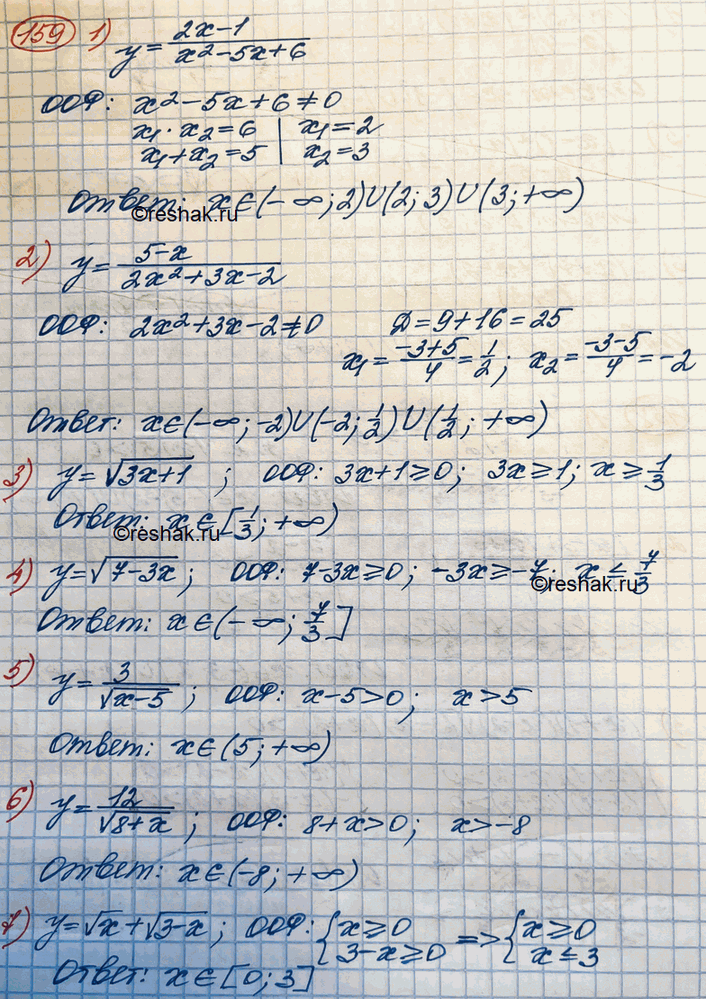 159 1) y = (2x-1)/(x²-5x+6)
ООФ: x²-5x+6≠0
x₁·x₂=6 | x₁=2
x₁+x₂=5 | x₂=3
Ответ: x∈(-∞;2)∪(2;3)∪(3;+∞)
©reshak.ru
2) y = (5-x)/(2x²+3x-2)
ООФ: 2x²+3x-2≠0 Д=9+16=25
x₁=(-3+5)/4=1/2; x₂=(-3-5)/4=-2
Ответ: x∈(-∞;-2)∪(-2;1/2)∪(1/2;+∞)
3) y=√(3x+1) ; ООФ: 3x+1≥0; 3x≥1; x≥1/3
Ответ: x∈[1/3;+∞)
©reshak.ru
4) y=√(7-3x); ООФ: 7-3x≥0; -3x≥-7; x≤7/3
©reshak.ru
Ответ: x∈(-∞;7/3]
5) y=3/√(x-5); ООФ: x-5>0; x>5
Ответ: x∈(5;+∞)
6) y=12/√(8+x); ООФ: 8+x>0; x>-8
Ответ: x∈(-8;+∞)
7) y=√x+√(3-x); ООФ: {x≥0 => {x≥0
3-x≥0 x≤3
Ответ: x∈[0;3]